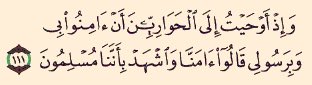 وَإِذْ أَوْحَيْتُ إِلَى ٱلْحَوَارِيِّـۧنَ أَنْ ءَامِنُوا۟ بِى
وَبِرَسُولِى قَالُوٓا۟ ءَامَنَّا وَٱشْهَدْ بِأَنَّنَا مُسْلِمُونَ ١١١